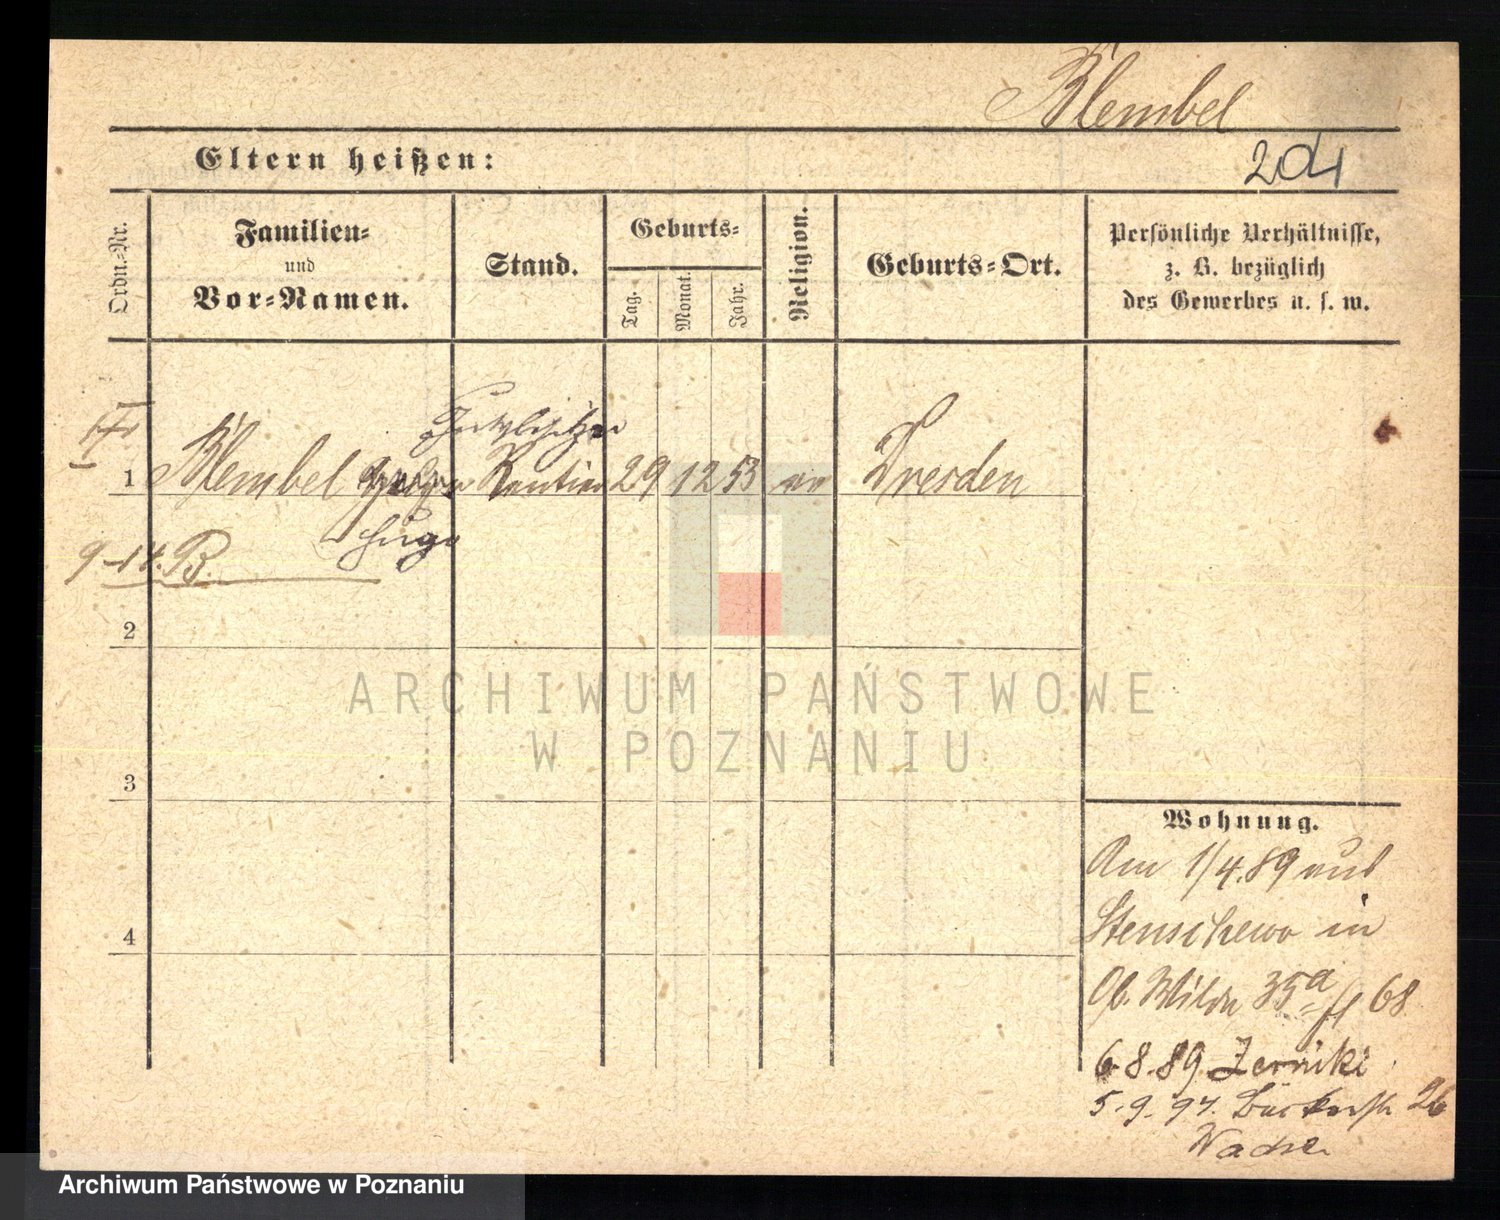 Klembel
204
Eltern heißen:
Ordn.-Nr.
Familien-
und
Vor-Namen.
Stand.
Geburts-
Tag.
Monat.
Jahr.
Religion.
Geburts-Ort.
Persönliche Verhältnisse,
z. B. bezüglich
des Gewerbes u. s. w.
Gutsbesitzer
1 Klembel Rentier 29 12 53 ev Dresden
Hugo
9-14. B.
2
3
4
Wohnung.
Am 1/4.89 aus
Stenschewo in
Ob. Wilda 35a 68
6.8.89 Zerniki
5.9.97. Bäckerstr 26
ARCHIWUM PAŃSTWOWE
W POZNANIU
Archiwum Państwowe w Poznaniu